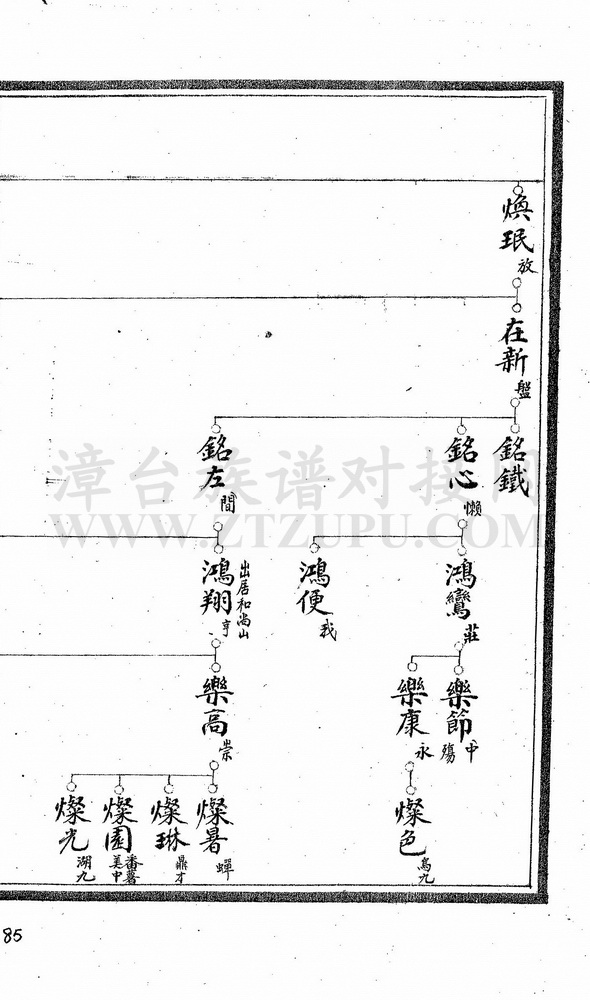 煥珉
放
在新
盤
銘鐵
銘心
懶
銘左
間
鴻鸞
莊
鴻便
我
鴻翔
亨
出居和尚山
樂節
中殤
樂康
永
樂高
崇
燦色
烏九
燦暑
蟬
燦琳
鼎才
燦園
番薯
美中
燦光
湖九
漳台族谱对接网
WWW.ZTZUPU.COM
85